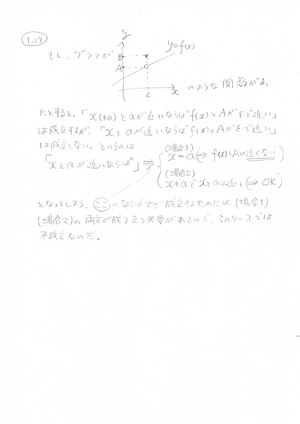 1.17
もし、グラフが
y
y=f(x)
B
A
a
x
のような関数がよ
だとすると、「x(≠a)とaが近いならばf(x)とAがまた近い」
は成立するが、「xとaが近いならばf(x)とAがまた近い」
は成立しない。というのは
「xとaが近いならば」⇒
(場合1)
x=a (⇒ f(x)とAは近くない)
(場合2)
x≠aでxとaは近い (⇒ OK)
となってしまう。ならばが成立するためには、(場合1)
(場合2)の両方が成り立つ必要があるので、このケースでは
不成立なのだ。